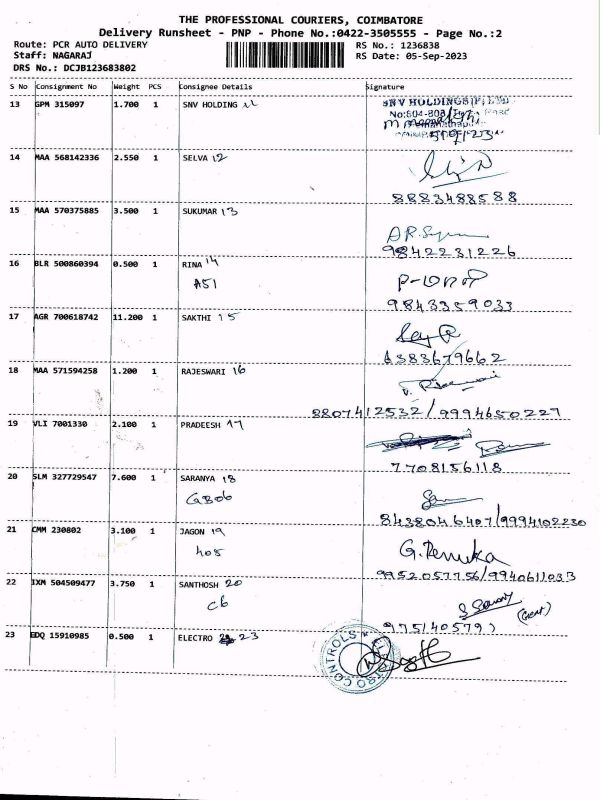 THE PROFESSIONAL COURIERS, COIMBATORE
Delivery Runsheet - PNP - Phone No.:0422-3505555 - Page No.:2
Route: PCR AUTO DELIVERY RS No.: 1236838
Staff: NAGARAJ RS Date: 05-Sep-2023
DRS No.: DCJB123683802
S No Consignment No Weight PCS Consignee Details Signature
13 GPM 315097 1.700 1 SNV HOLDING 11 SNV HOLDINGS (P) LTD
No:604-808
14 MAA 568142336 2.550 1 SELVA 12
8883488588
15 MAA 570375885 3.500 1 SUKUMAR 13
9842231226
16 BLR 500860394 0.500 1 RINA 14
A51
9843359033
17 AGR 700618742 11.200 1 SAKTHI 15
6383679662
18 MAA 571594258 1.200 1 RAJESWARI 16
8807412532/9994650227
19 VLI 7001330 2.100 1 PRADEESH 17
7708156118
20 SLM 327729547 7.600 1 SARANYA 18
GB06
8438046407/9994102230
21 CMM 230802 3.100 1 JAGON 19
405 G. Renuka
9952057756/9940611033
22 IXM 504509477 3.750 1 SANTHOSH 20
C6
23 EDQ 15910985 0.500 1 ELECTRO 23
ELECTRO CONTROLS